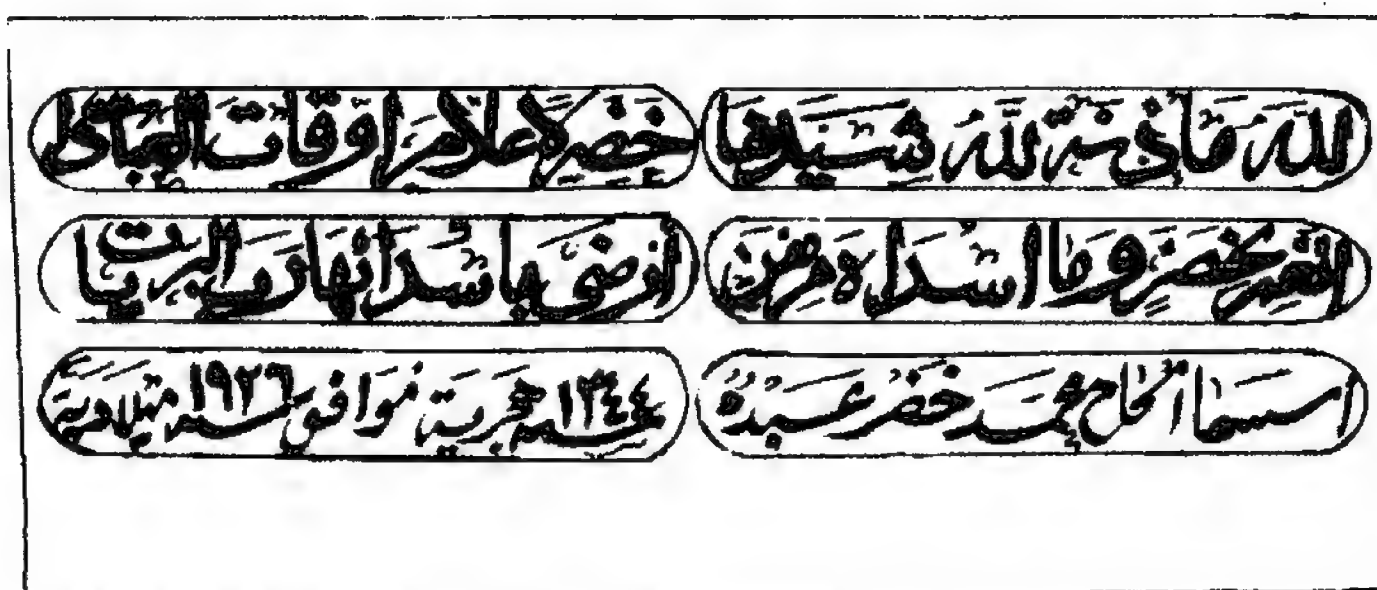 لله مأذنة لله شيدها خضر لإعلام أوقات العبادات
أنعم بخضر وما أسداه من منن أرضى بإسدائها رب البريات
اسسها الحاج محمد خضر عبده سنة ١٣٤٤ هجرية موافق سنة ١٩٢٦ ميلادية